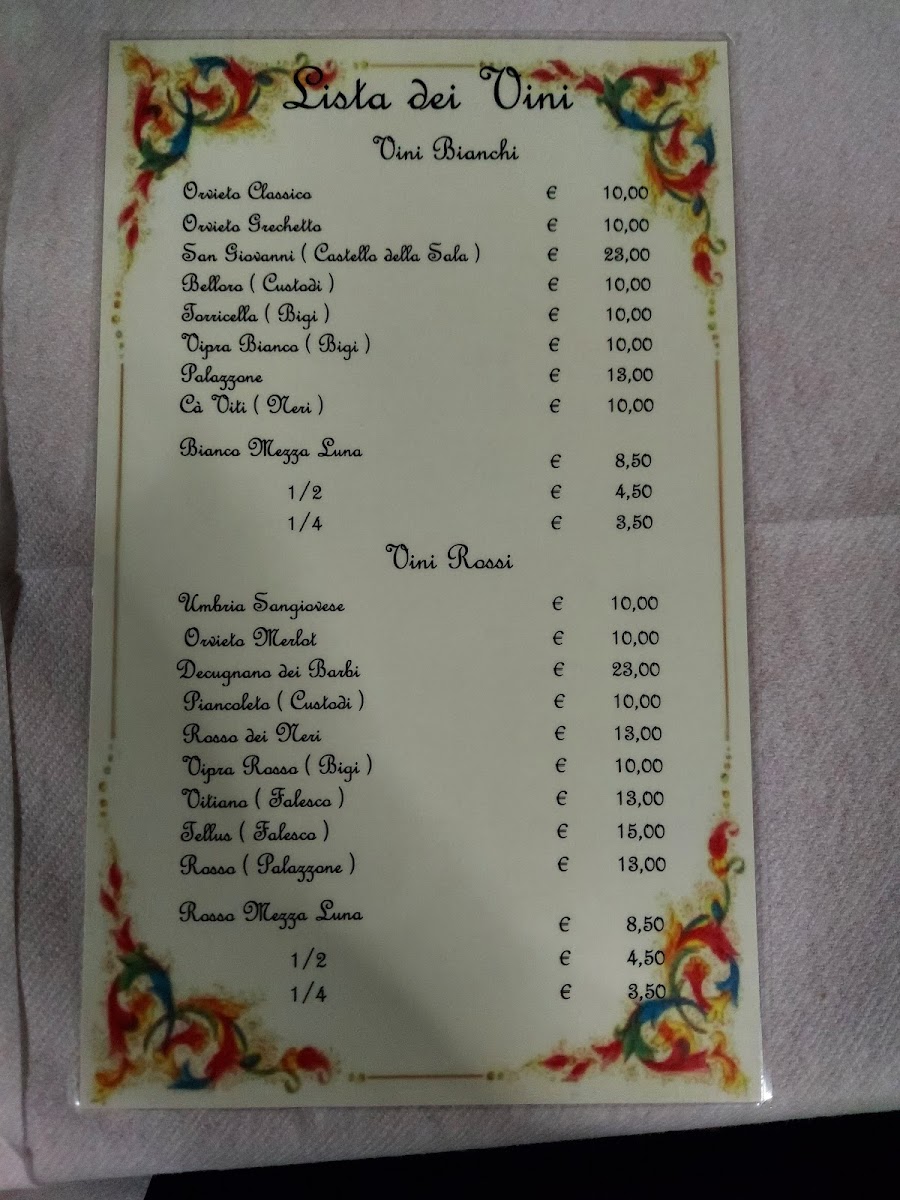 Lista dei Vini
Vini Bianchi
Orvieto Classico € 10,00
Orvieto Grechetto € 10,00
San Giovanni ( Castello della Sala ) € 23,00
Belloro ( Custodi ) € 10,00
Torricella ( Bigi ) € 10,00
Vipra Bianco ( Bigi ) € 10,00
Palazzone € 13,00
Cà Viti ( Neri ) € 10,00
Bianco Mezza Luna € 8,50
1/2 € 4,50
1/4 € 3,50
Vini Rossi
Umbria Sangiovese € 10,00
Orvieto Merlot € 10,00
Decugnano dei Barbi € 23,00
Piancoleto ( Custodi ) € 10,00
Rosso dei Neri € 13,00
Vipra Rossa ( Bigi ) € 10,00
Vitiano ( Falesco ) € 13,00
Tellus ( Falesco ) € 15,00
Rosso ( Palazzone ) € 13,00
Rosso Mezza Luna € 8,50
1/2 € 4,50
1/4 € 3,50